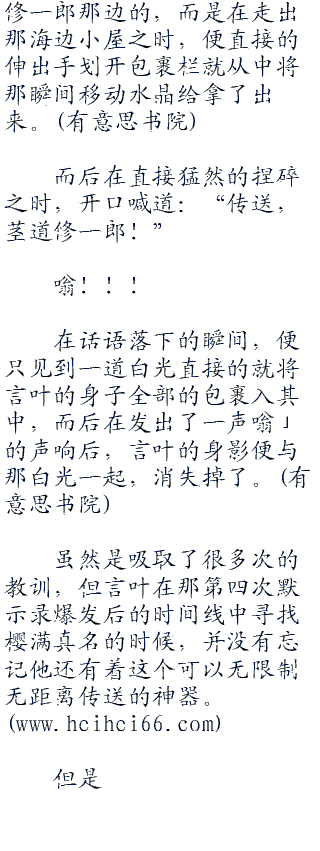 修一郎那边的，而是在走出
那海边小屋之时，便直接的
伸出手划开包裹栏就从中将
那瞬间移动水晶给拿了出
来。(有意思书院)
而后在直接猛然的捏碎
之时，开口喊道：“传送，
茎道修一郎！”
嗡！！！
在话语落下的瞬间，便
只见到一道白光直接的就将
言叶的身子全部的包裹入其
中，而后在发出了一声嗡」
的声响后，言叶的身影便与
那白光一起，消失掉了。(有
意思书院)
虽然是吸取了很多次的
教训，但言叶在那第四次默
示录爆发后的时间线中寻找
樱满真名的时候，并没有忘
记他还有着这个可以无限制
无距离传送的神器。
(www.hcihci66.com)
但是